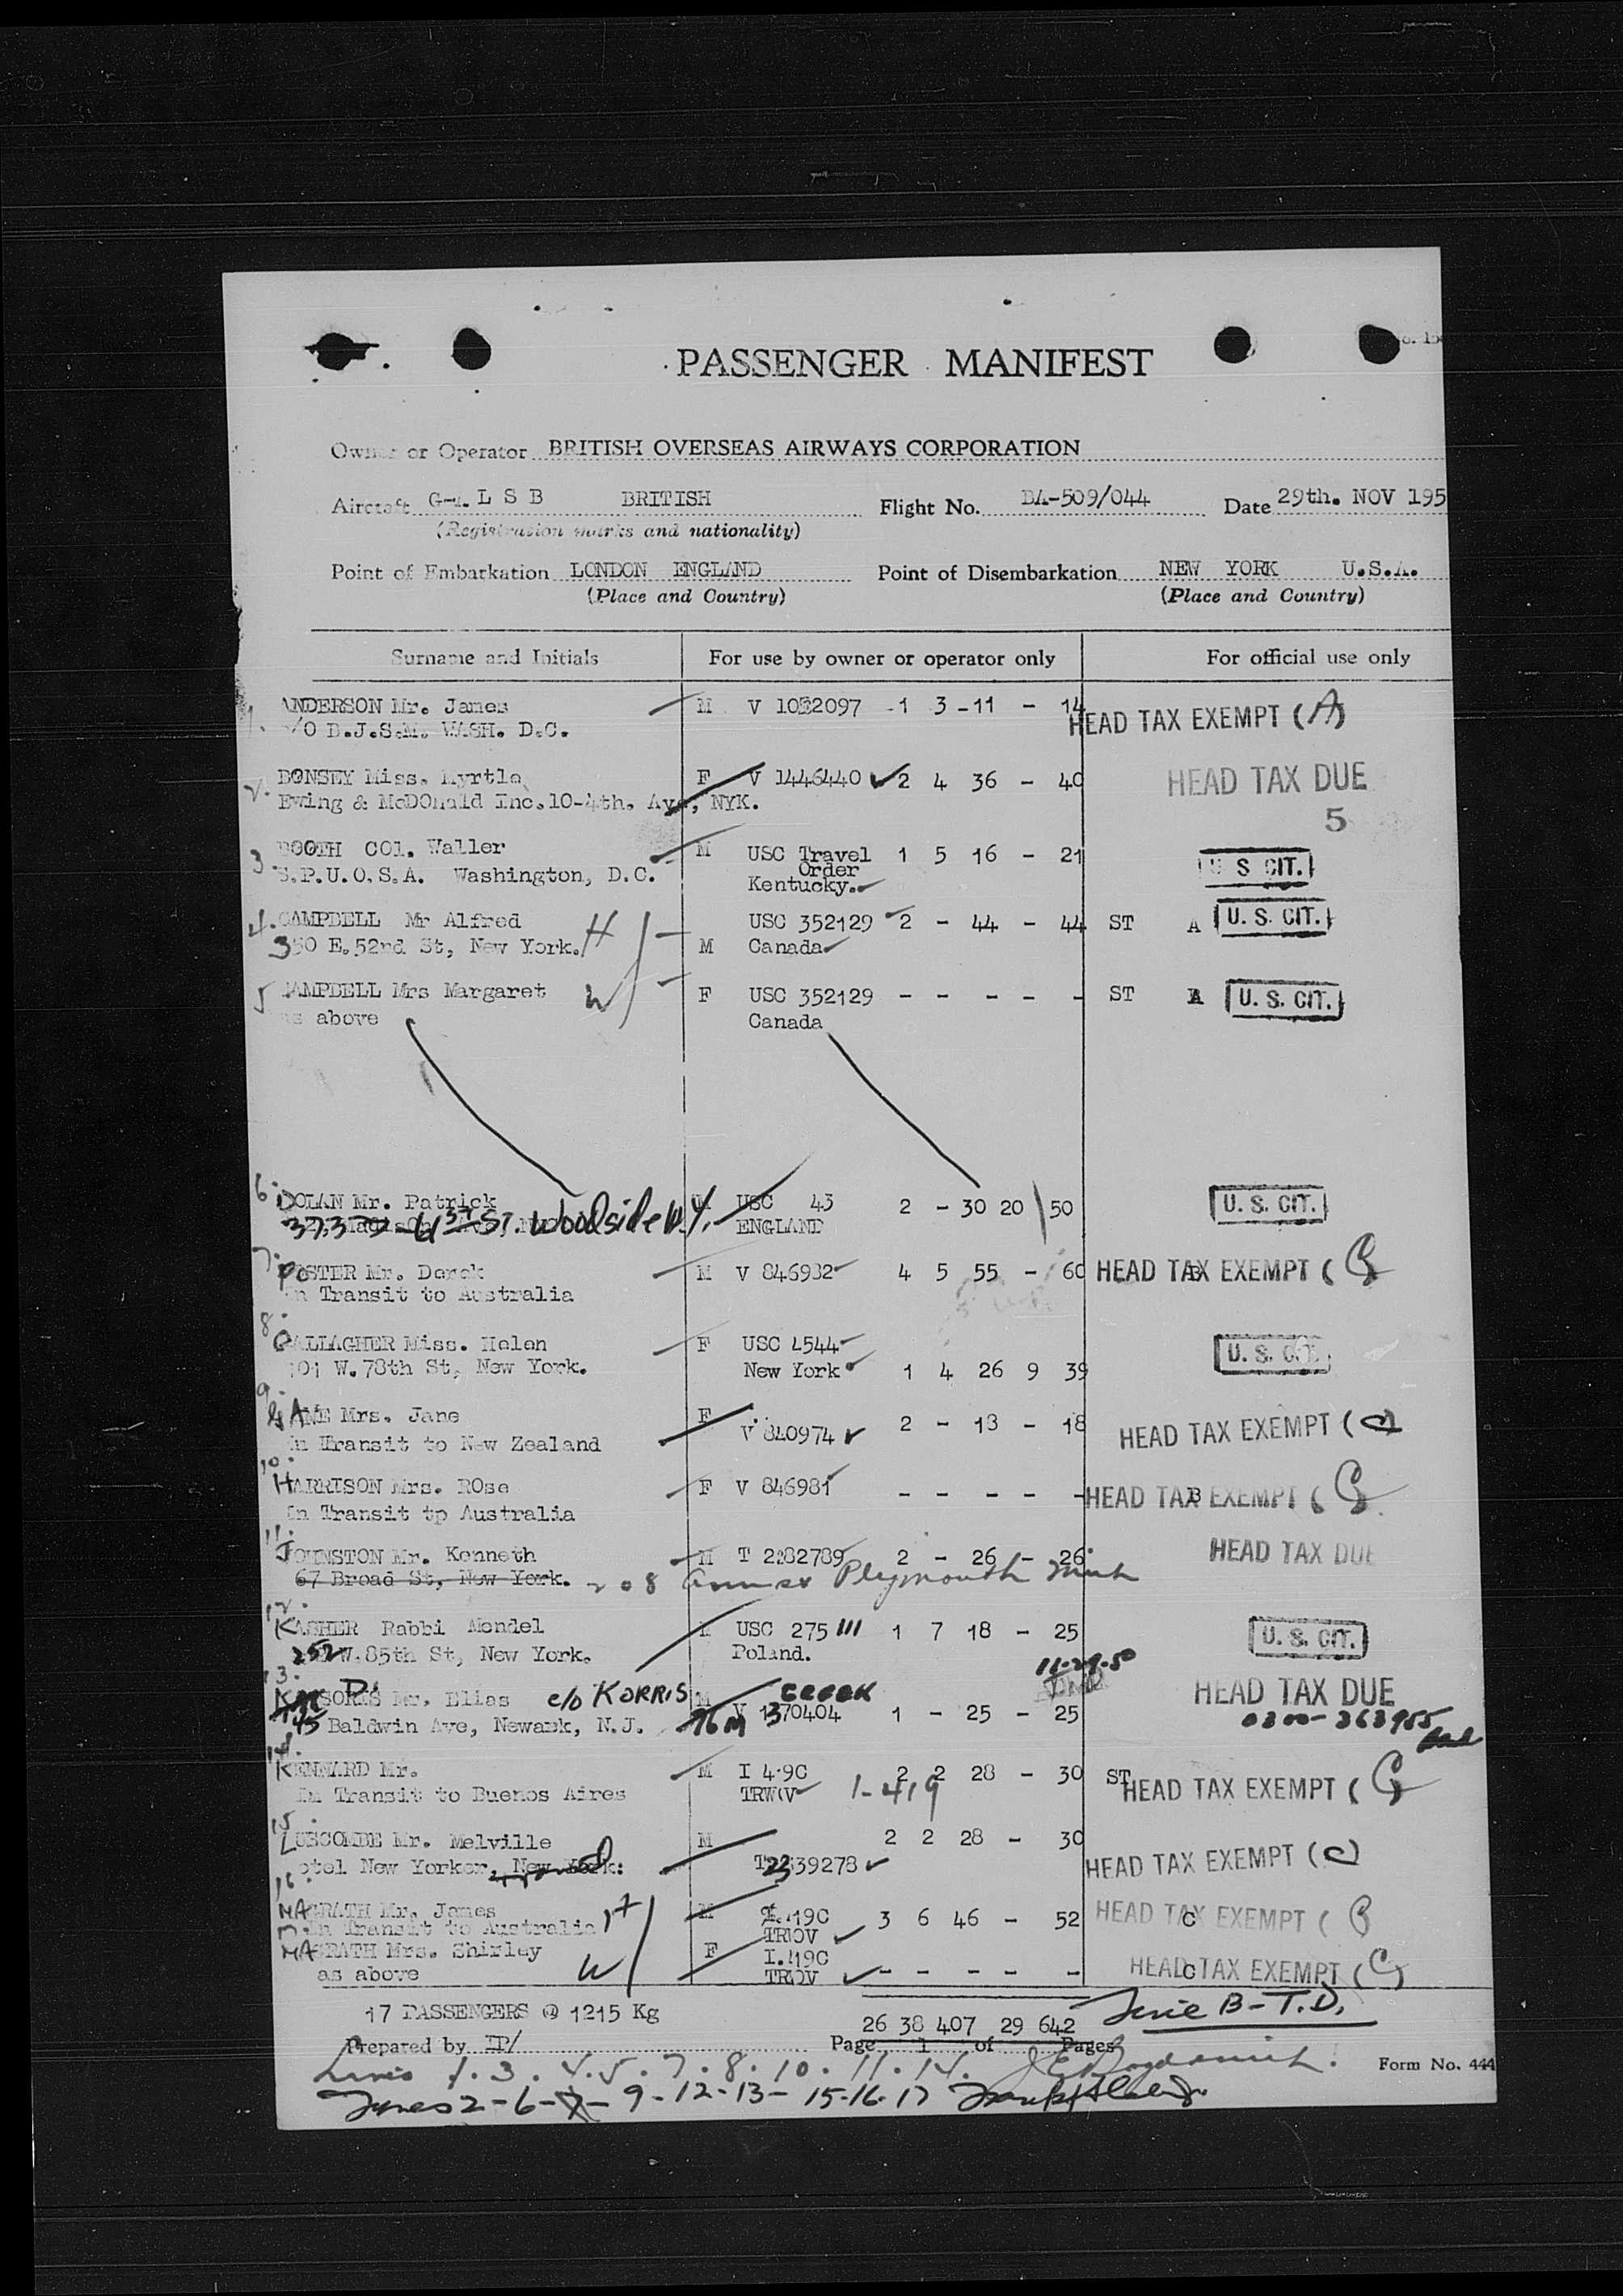 PASSENGER MANIFEST
Owner or Operator BRITISH OVERSEAS AIRWAYS CORPORATION
Aircraft L S B BRITISH Flight No. BA-509/044 Date 29th. NOV 195
(Registration marks and nationality)
Point of Embarkation LONDON ENGLAND Point of Disembarkation NEW YORK U.S.A.
(Place and Country) (Place and Country)
Surname and Initials For use by owner or operator only For official use only
1. ANDERSON Mr. James M V 1032097 1 3 - 11 - 14 HEAD TAX EXEMPT (A)
C/O B.J.S.M. WASH. D.C.
2. BONSEY Miss. Myrtle F V 1446440 2 4 36 - 40 HEAD TAX DUE
Ewing & McDOnald Inc. 10-4th. Ave, NYK. 5
3. BOOTH COl. Waller M USC Travel 1 5 16 - 21 U S CIT.
S.P.U.O.S.A. Washington, D.C. Order
Kentucky.
4. CAMPBELL Mr Alfred H USC 352129 2 - 44 - 44 ST A U. S. CIT.
350 E. 52nd St, New York. M Canada
5 CAMPBELL Mrs Margaret W F USC 352129 - - - - - ST A U. S. CIT.
as above Canada
6. DOLAN Mr. Patrick USC 43 2 - 30 20 50 U. S. CIT.
ST. Woodside N.Y. ENGLAND
7. FOSTER Mr. Derek M V 846982 4 5 55 - 60 HEAD TAX EXEMPT (
In Transit to Australia
8. GALLAGHER Miss. Helen F USC 4544 U. S. CIT.
101 W. 78th St, New York. New York 1 4 26 9 39
9. Mrs. Jane F V 840974 2 - 18 - 18 HEAD TAX EXEMPT (C)
In Transit to New Zealand
10. HARRISON Mrs. ROse F V 846981 - - - - - HEAD TAX EXEMPT (
In Transit tp Australia
11. JOHNSTON Mr. Kenneth M T 2282789 2 - 26 - 26 HEAD TAX DUE
67 Broad St, New York. 208 Plymouth Mich
12. KASHER Rabbi Mendel USC 275 1 7 18 - 25 U. S. CIT.
252 W. 85th St, New York. Poland.
13. Mr. Elias c/o KORRIS M GREEK 11-29-50 HEAD TAX DUE
45 Baldwin Ave, Newark, N.J. V 1370404 1 - 25 - 25 0300-363955
14. KENNARD Mr. M I 419C 2 2 28 - 30 ST HEAD TAX EXEMPT (
In Transit to Buenos Aires TRWOV 1-419
15. LUSCOMBE Mr. Melville M 2 2 28 - 30 HEAD TAX EXEMPT (C)
Hotel New Yorker, New York. 39278
16. MAGRATH Mr. James H M I.419C 3 6 46 - 52 HEAD TAX EXEMPT (
In Transit to Australia TRWOV
MAGRATH Mrs. Shirley W F I.419C - - - - - HEAD TAX EXEMPT (C)
as above TRWOV
17 PASSENGERS @ 1215 Kg 26 38 407 29 642 B-T.D.
Prepared by Page 1 of Pages
Lines 1. 3. 4. 5. 7. 8. 10. 11. 14. Form No. 444
Lines 2-6-7-9-12-13-15-16-17